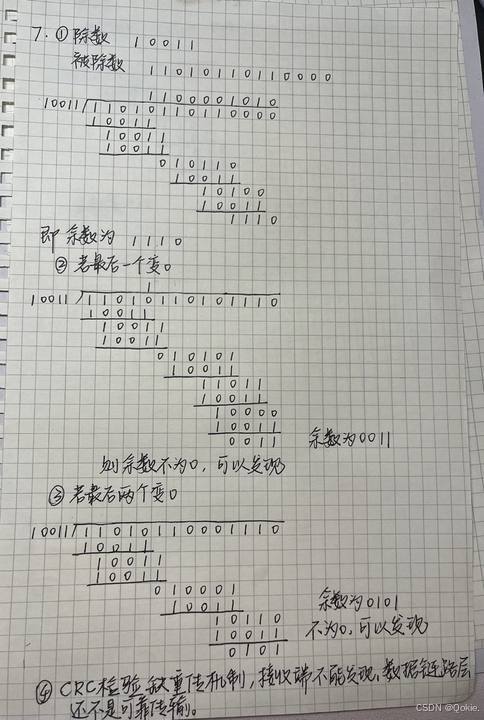 7. ① 除数 10011
被除数 11010110110000
1100001010
10011 11010110110000
10011
10011
10011
010110
10011
10100
10011
1110
即余数为 1110
② 若最后一个变0
1
10011 11010110101110
10011
10011
10011
010101
10011
11011
10011
10000
10011
0011 余数为0011
则余数不为0,可以发现
③ 若最后两个变0
10011 11010110001110
10011
10011
10011
010001
10011
余数为0101
10110
不为0,可以发现
10011
0101
④ CRC检验缺重传机制,接收端不能发现,数据链路层
还不是可靠传输。
CSDN @Qokie.